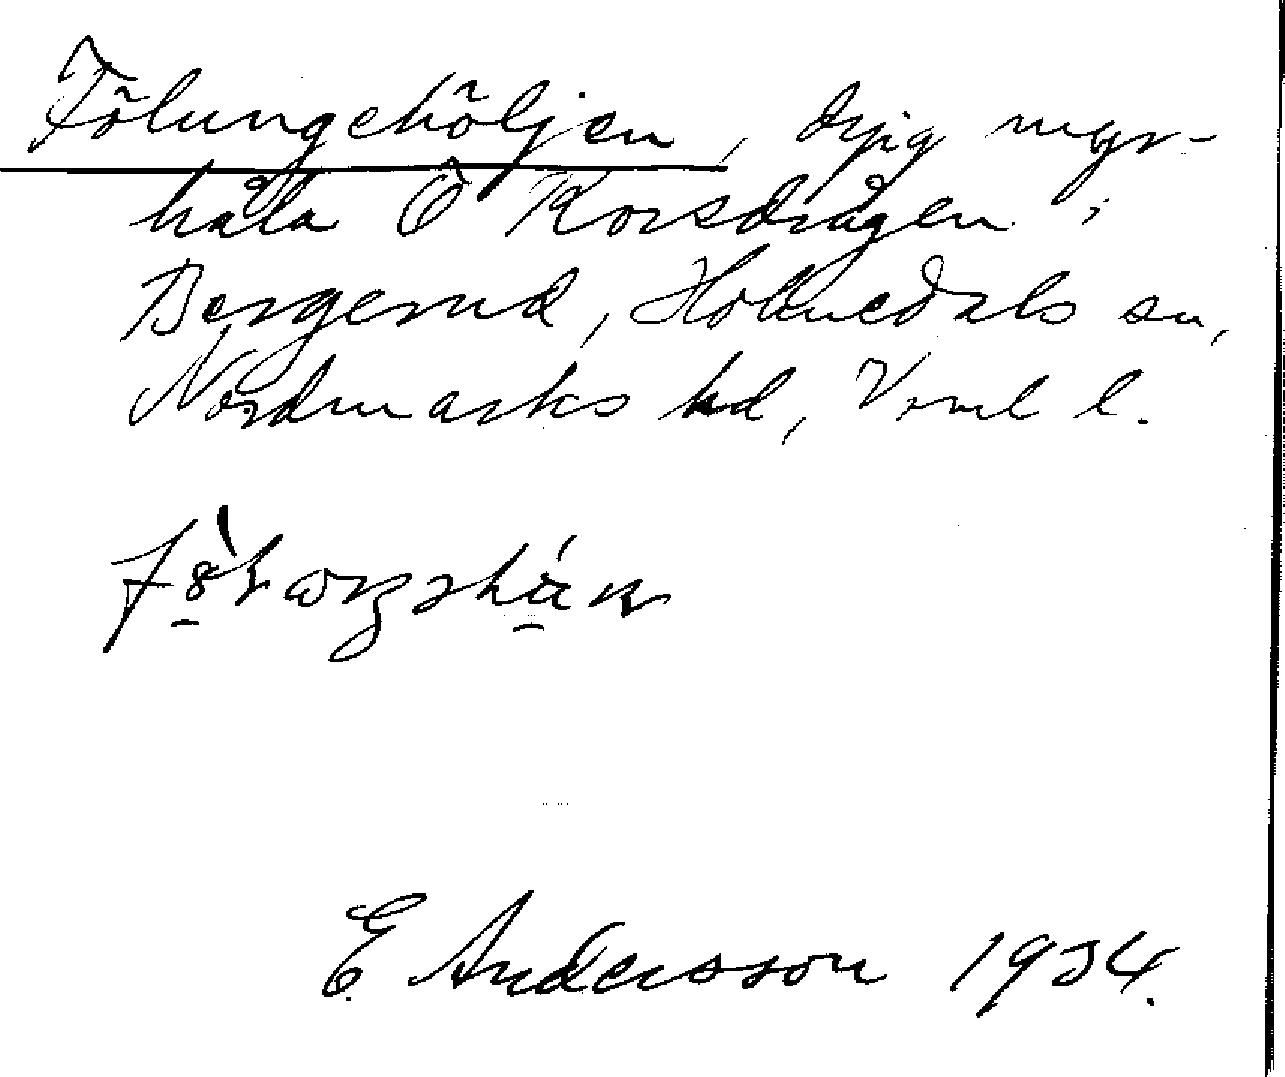 Fölungehöljen, djip myr-
håla Ö Korsdrågen i
Bergerud, Holmedals sn,
Nordmarks hd, Vrml l.
E. Andersson 1934.